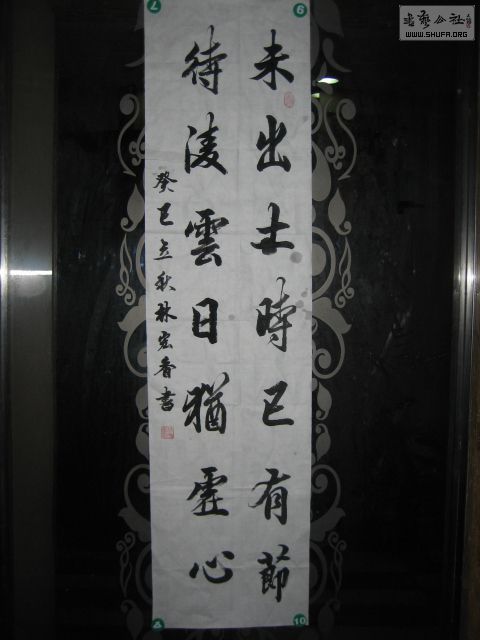 未出土時已有節
待凌雲日猶虛心
癸巳立秋林宏香書
書藝公社
WWW.SHUFA.ORG
7
9
10